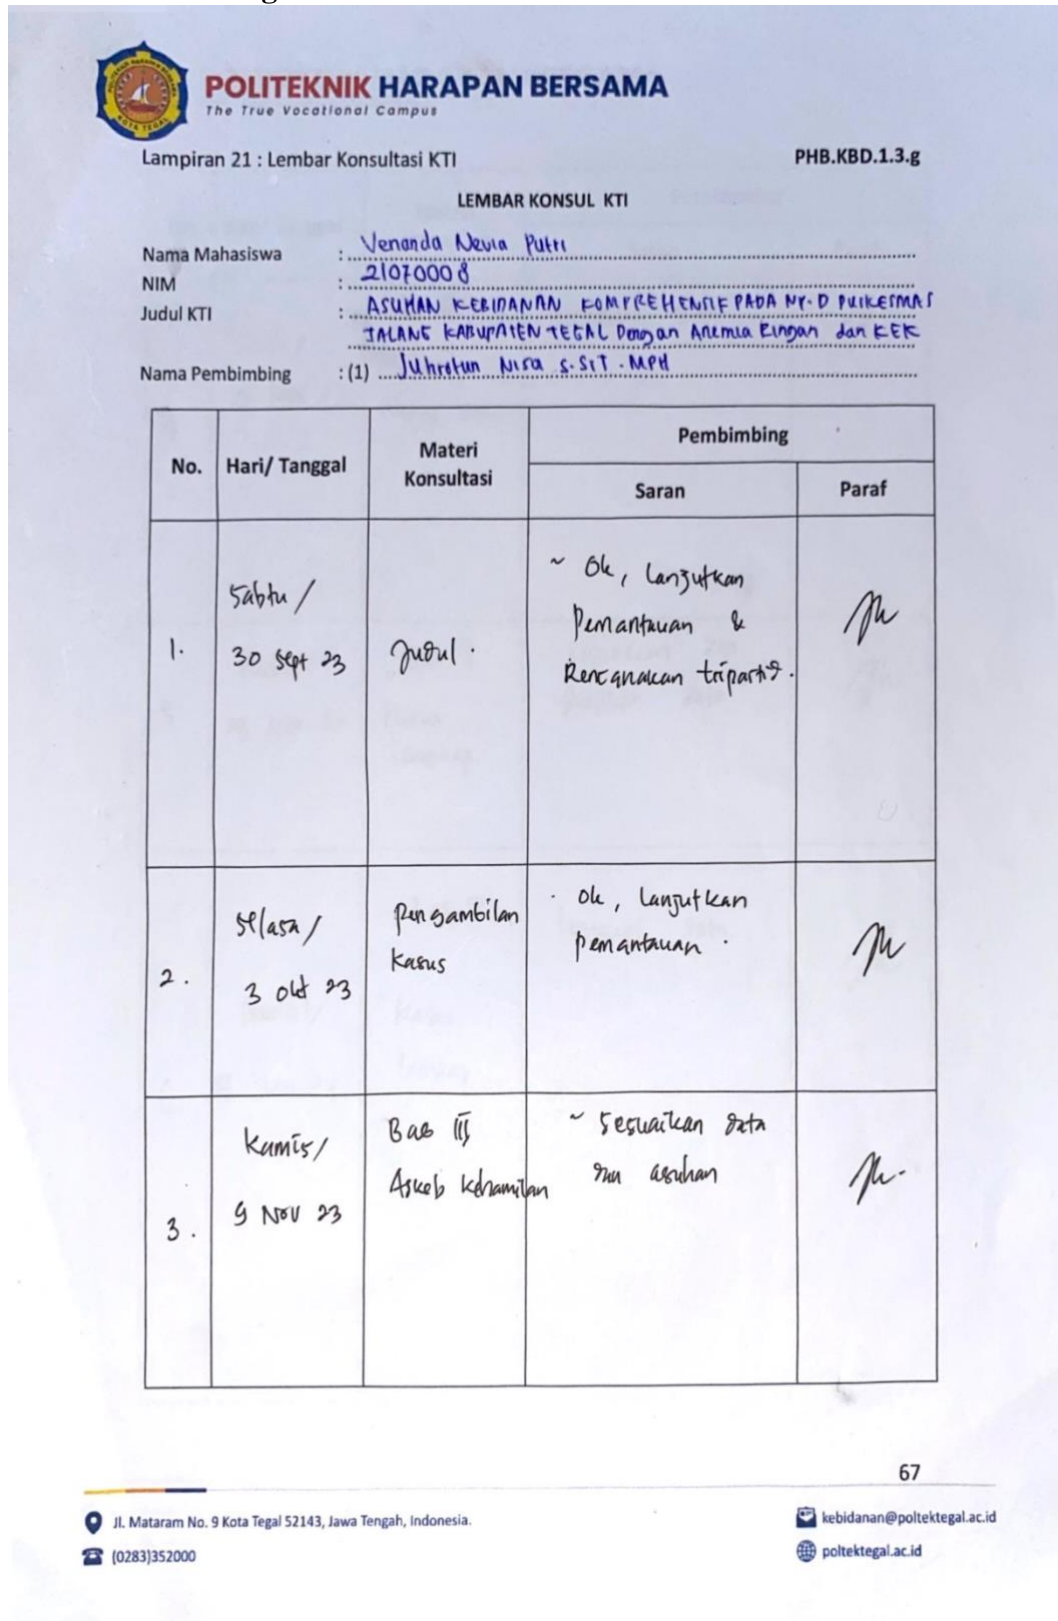 POLITEKNIK HARAPAN BERSAMA
The True Vocational Campus
Lampiran 21 : Lembar Konsultasi KTI
PHB.KBD.1.3.g
LEMBAR KONSUL KTI
Nama Mahasiswa : Venanda Nevia Putri
NIM : 21070008
Judul KTI : ASUHAN KEBIDANAN KOMPREHENSIF PADA NY. D PUSKESMAS
JALANG KABUPATEN TEGAL Dengan Anemia Ringan dan KEK
Nama Pembimbing : (1) Juhrotun Nisa S.SiT. MPH
No. Hari/ Tanggal Materi Konsultasi Pembimbing
Saran Paraf
1. Sabtu / 30 Sept 23
Judul.
~ Ok, Lanjutkan
Pemantauan &
Rencanakan tripartit.
2. Selasa / 3 Okt 23
Pengambilan
Kasus
- Ok, Lanjutkan
pemantauan.
3. Kamis / 9 Nov 23
Bab III
Askeb Kehamilan
~ Sesuaikan data
asuhan
67
Jl. Mataram No. 9 Kota Tegal 52143, Jawa Tengah, Indonesia.
(0283)352000
kebidanan@poltektegal.ac.id
poltektegal.ac.id